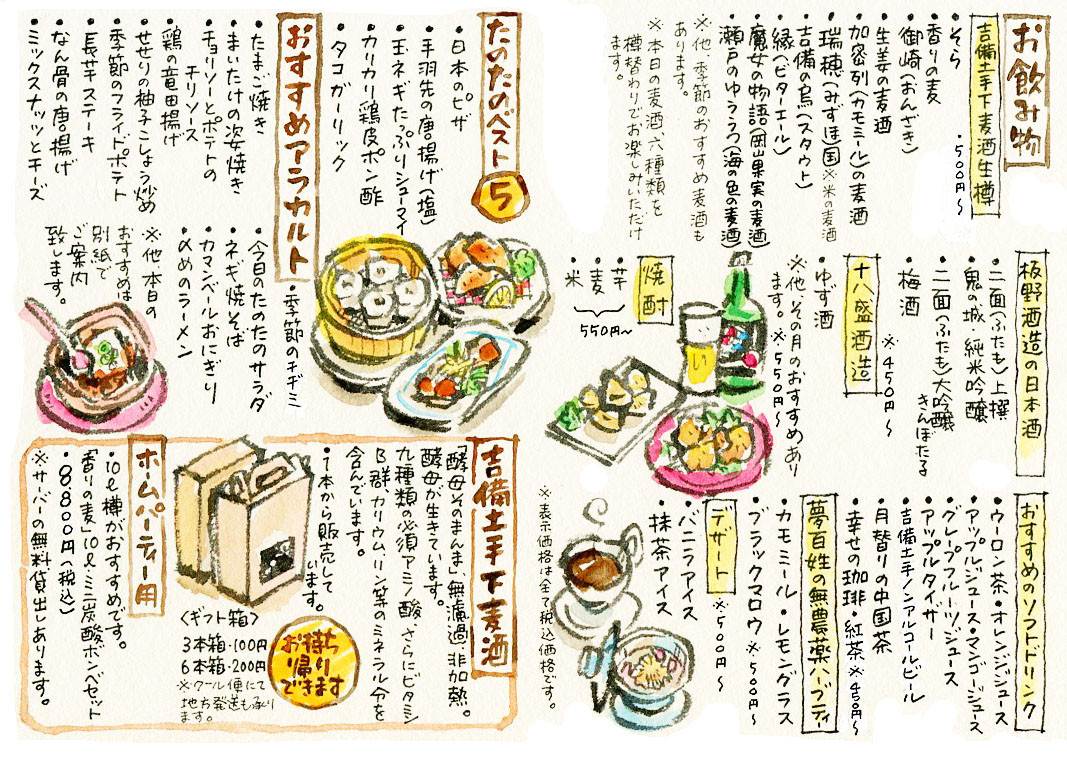 お飲み物
吉備土手下麦酒生樽
・そら ・500円〜
・香りの麦
・御崎(おんざき)
・生姜の麦酒
・加密列(カモミール)の麦酒
・瑞穂(みずほ)国※米の麦酒
・吉備の烏(スタウト)
・縁(ビターエール)
・魔女の物語(岡山果実の麦酒)
・瀬戸のゆううつ(海の色の麦酒)
※他、季節のおすすめ麦酒も
あります。
※本日の麦酒、六種類を
樽替わりでお楽しみいただけ
ます。
板野酒造の日本酒
・二面(ふたも)上撰
・鬼の城 純米吟醸
きんぼたる
・二面(ふたも)大吟醸
・梅酒 ※450円〜
十八盛酒造
・ゆず酒
※他、その月のおすすめあり
ます。 ※550円〜
焼酎
芋
麦
米
550円〜
おすすめのソフトドリンク
・ウーロン茶・オレンジジュース
・アップルジュース・マンゴージュース
・グレープフルーツジュース
・アップルタイザー
・吉備土手ノンアルコールビール
・月替りの中国茶
・幸せの珈琲・紅茶※450円〜
夢百姓の無農薬ハーブティー
・カモミール・レモングラス
・ブラックマロウ ※500円〜
デザート ※500円〜
・バニラアイス
・抹茶アイス
※表示価格は全て税込価格です。
たのたのベスト5
・日本のピザ
・手羽先の唐揚げ(塩)
・玉ネギたっぷりシューマイ
・カリカリ鶏皮ポン酢
・タコガーリック
おすすめアラカルト
・たまご焼き
・まいたけの姿焼き
・チョリソーとポテトの
チリソース
・鶏の竜田揚げ
・せせりの柚子こしょう炒め
・季節のフライドポテト
・長芋ステーキ
・なん骨の唐揚げ
・ミックスナッツとチーズ
・季節のチヂミ
・今日のたのたのサラダ
・ネギ焼そば
・カマンベールおにぎり
・〆めのラーメン
※他、本日の
おすすめは
別紙で
ご案内
致します。
吉備土手下麦酒
「酵母そのまんま」無濾過、非加熱。
酵母が生きています。
九種類の必須アミノ酸、さらにビタミン
B群、カリウム、リン等のミネラル分を
含んでいます。
・1本から販売して
います。
<ギフト箱>
3本箱・100円
6本箱・200円
※クール便にて
地方発送も承り
ます。
お持ち
帰り
できます
ホームパーティー用
・10ℓ樽がおすすめです。
・「香りの麦」10ℓ・ミニ炭酸ボンベセット
・8800円(税込)
※サーバーの無料貸出しあります。